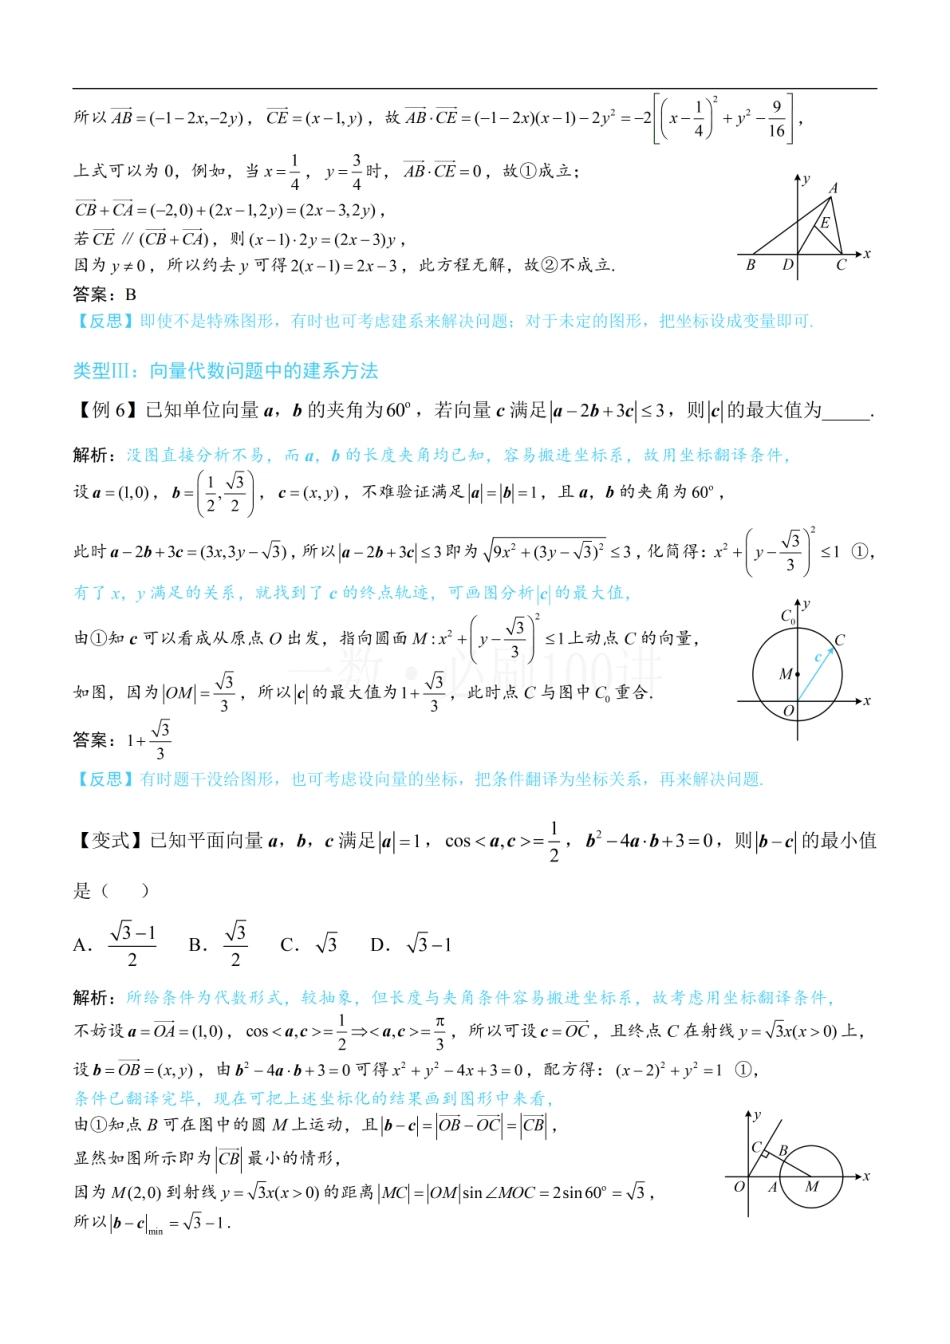 所以 $\overrightarrow{AB}=(-1-2x,-2y)$，$\overrightarrow{CE}=(x-1,y)$，故 $\overrightarrow{AB}\cdot\overrightarrow{CE}=(-1-2x)(x-1)-2y^2=-2\left[\left(x-\frac{1}{4}\right)^2+y^2-\frac{9}{16}\right]$，
上式可以为 0，例如，当 $x=\frac{1}{4}$，$y=\frac{3}{4}$ 时，$\overrightarrow{AB}\cdot\overrightarrow{CE}=0$，故①成立；
$\overrightarrow{CB}+\overrightarrow{CA}=(-2,0)+(2x-1,2y)=(2x-3,2y)$，
若 $\overrightarrow{CE}$ ∥ $(\overrightarrow{CB}+\overrightarrow{CA})$，则 $(x-1)\cdot 2y=(2x-3)y$，
因为 $y\neq 0$，所以约去 y 可得 $2(x-1)=2x-3$，此方程无解，故②不成立.
y
A
E
B D C x
答案：B
【反思】即使不是特殊图形，有时也可考虑建系来解决问题；对于未定的图形，把坐标设成变量即可.
类型Ⅲ：向量代数问题中的建系方法
【例 6】已知单位向量 a，b 的夹角为 $60^{o}$，若向量 c 满足 $|a-2b+3c|\leq 3$，则 $|c|$ 的最大值为_____.
解析：没图直接分析不易，而 a，b 的长度夹角均已知，容易搬进坐标系，故用坐标翻译条件，
设 $a=(1,0)$，$b=\left(\frac{1}{2},\frac{\sqrt{3}}{2}\right)$，$c=(x,y)$，不难验证满足 $|a|=|b|=1$，且 a，b 的夹角为 $60^{o}$，
此时 $a-2b+3c=(3x,3y-\sqrt{3})$，所以 $|a-2b+3c|\leq 3$ 即为 $\sqrt{9x^2+(3y-\sqrt{3})^2}\leq 3$，化简得：$x^2+\left(y-\frac{\sqrt{3}}{3}\right)^2\leq 1$ ①，
有了 x，y 满足的关系，就找到了 c 的终点轨迹，可画图分析 $|c|$ 的最大值，
由①知 c 可以看成从原点 O 出发，指向圆面 $M:x^2+\left(y-\frac{\sqrt{3}}{3}\right)^2\leq 1$ 上动点 C 的向量，
如图，因为 $|OM|=\frac{\sqrt{3}}{3}$，所以 $|c|$ 的最大值为 $1+\frac{\sqrt{3}}{3}$，此时点 C 与图中 $C_0$ 重合.
一数·必刷100讲
y
$C_0$
C
c
M
O
x
答案：$1+\frac{\sqrt{3}}{3}$
【反思】有时题干没给图形，也可考虑设向量的坐标，把条件翻译为坐标关系，再来解决问题.
【变式】已知平面向量 a，b，c 满足 $|a|=1$，$\cos<a,c>=\frac{1}{2}$，$b^2-4a\cdot b+3=0$，则 $|b-c|$ 的最小值
是（ ）
A．$\frac{\sqrt{3}-1}{2}$ B．$\frac{\sqrt{3}}{2}$ C．$\sqrt{3}$ D．$\sqrt{3}-1$
解析：所给条件为代数形式，较抽象，但长度与夹角条件容易搬进坐标系，故考虑用坐标翻译条件，
不妨设 $a=\overrightarrow{OA}=(1,0)$，$\cos<a,c>=\frac{1}{2}\Rightarrow<a,c>=\frac{\pi}{3}$，所以可设 $c=\overrightarrow{OC}$，且终点 C 在射线 $y=\sqrt{3}x(x>0)$ 上，
设 $b=\overrightarrow{OB}=(x,y)$，由 $b^2-4a\cdot b+3=0$ 可得 $x^2+y^2-4x+3=0$，配方得：$(x-2)^2+y^2=1$ ①，
条件已翻译完毕，现在可把上述坐标化的结果画到图形中来看，
由①知点 B 可在图中的圆 M 上运动，且 $|b-c|=|\overrightarrow{OB}-\overrightarrow{OC}|=|\overrightarrow{CB}|$，
显然如图所示即为 $|\overrightarrow{CB}|$ 最小的情形，
因为 $M(2,0)$ 到射线 $y=\sqrt{3}x(x>0)$ 的距离 $|MC|=|OM|\sin\angle MOC=2\sin 60^{o}=\sqrt{3}$，
所以 $|b-c|_{\min}=\sqrt{3}-1$.
y
C B
O A M x